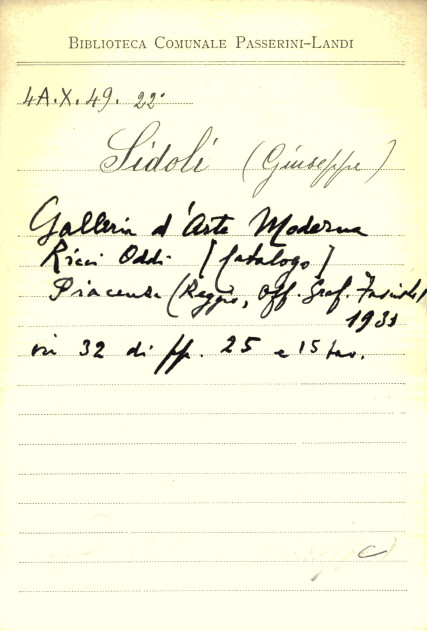 BIBLIOTECA COMUNALE PASSERINI-LANDI
4A.X.49. 22°
Sidoli (Giuseppe)
Galleria d'Arte Moderna
Ricci Oddi [Catalogo]
Piacenza (Reggio, Off. Graf. Fasciste)
1931
in 32 di pp. 25 e 15 tav.
C